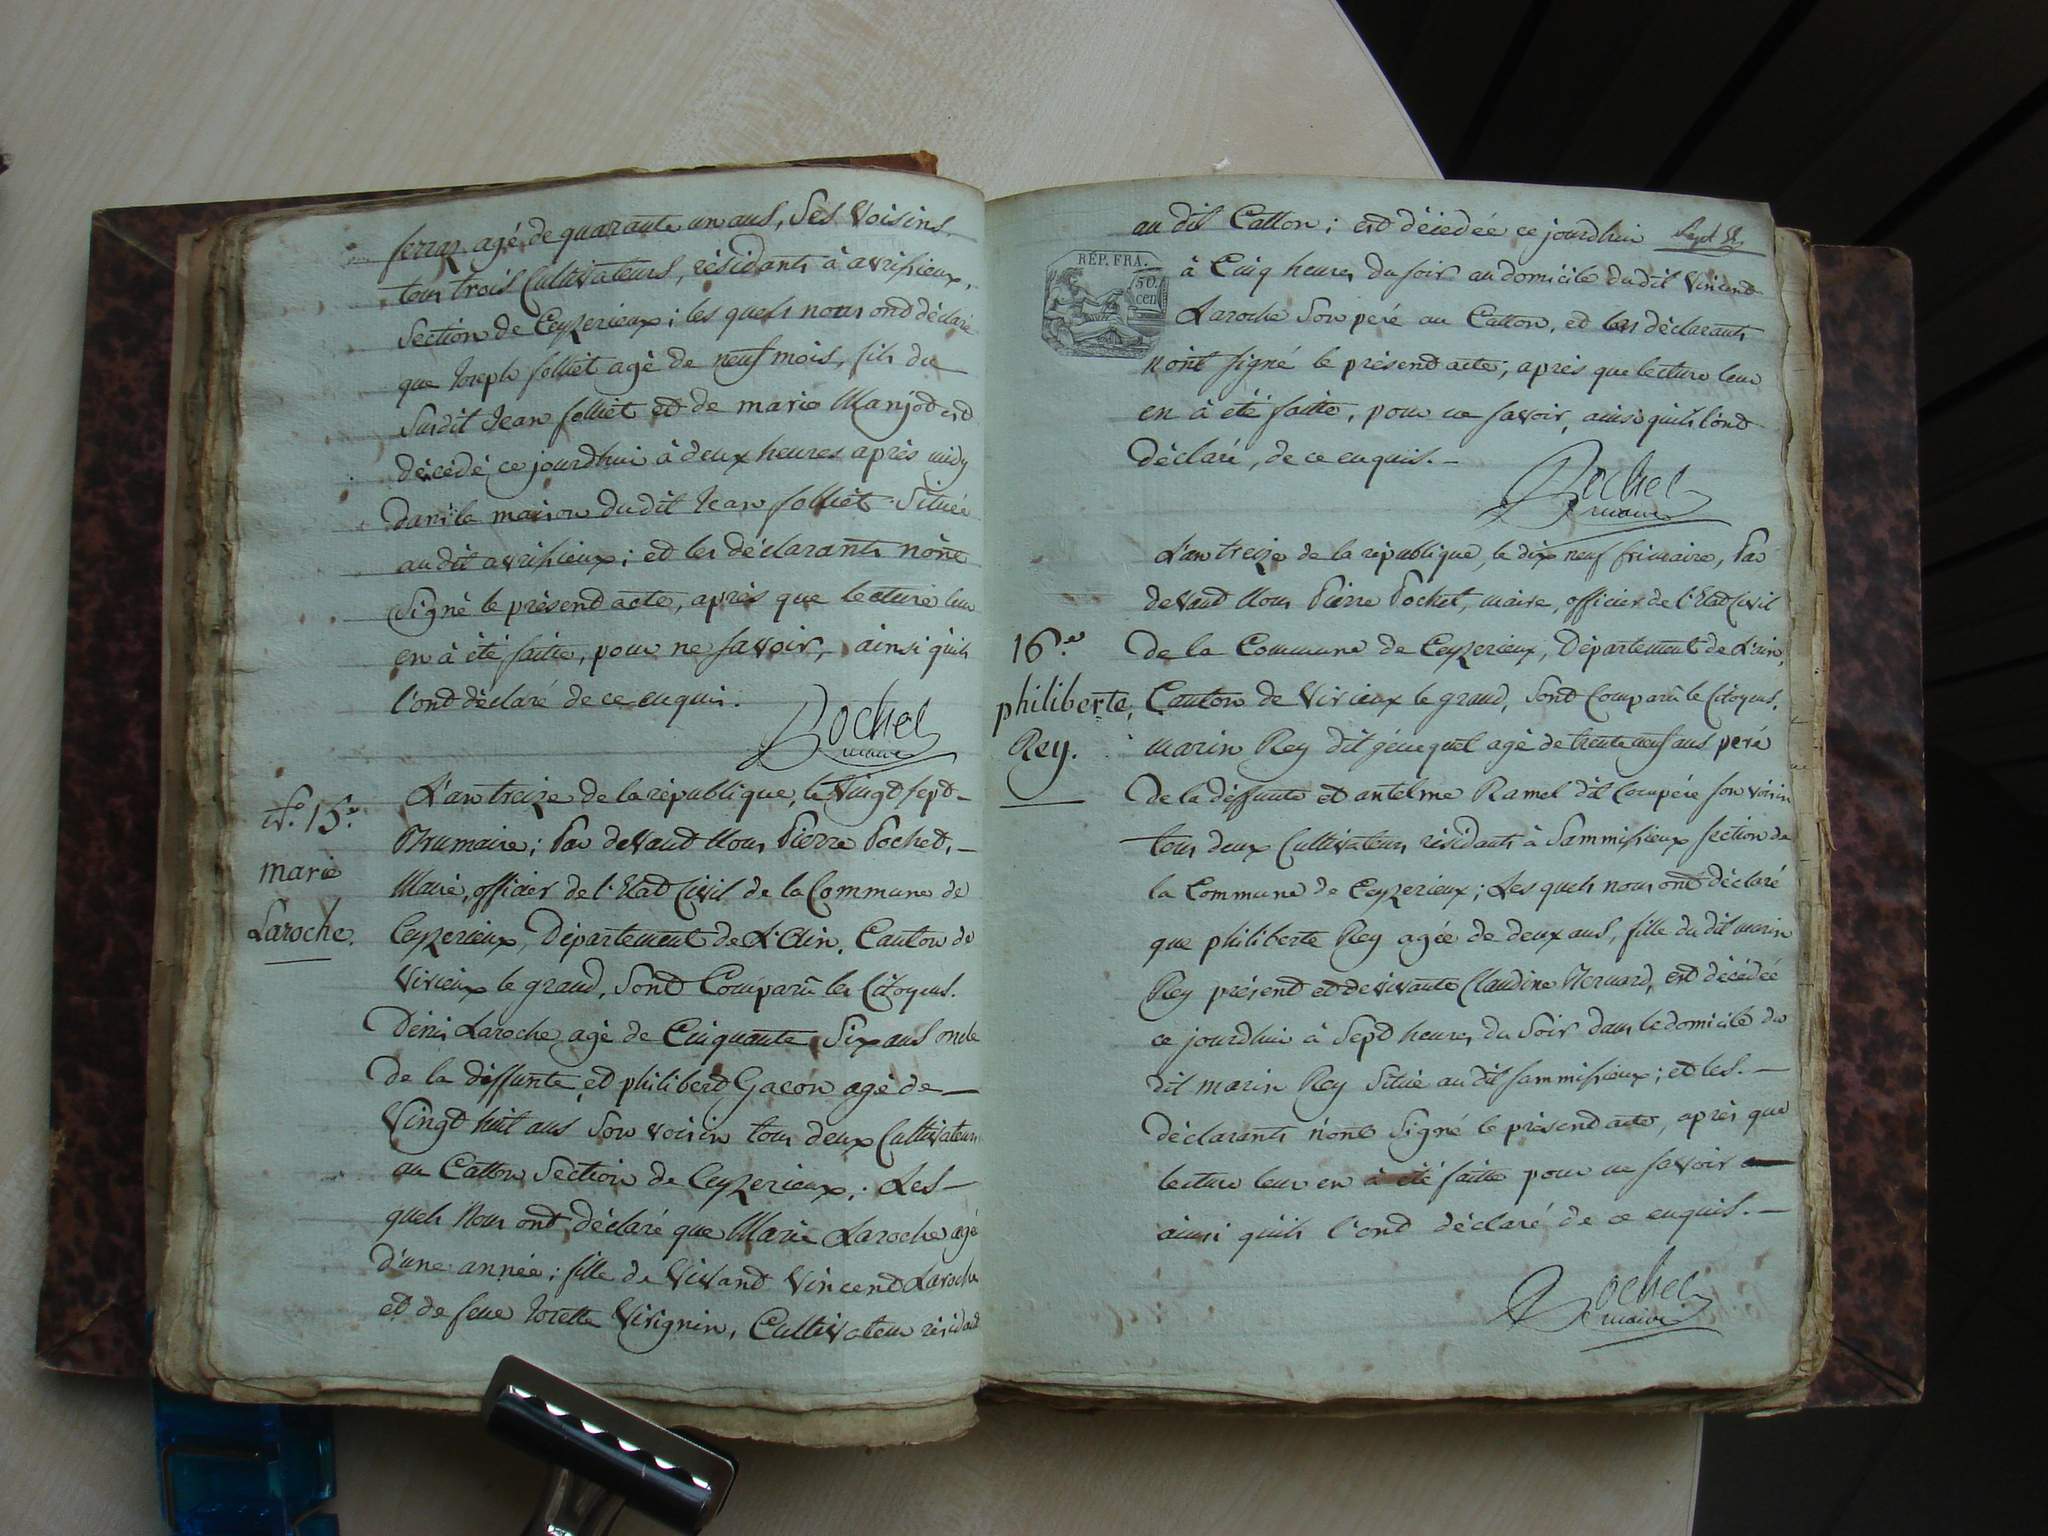 ferraz agé de quarante un ans, Ses Voisins
tous trois Cultivateurs, résidants à avrissieux,
Section de Ceyzerieux; les quels nous ond déclaré
que Joseph folliet agé de neuf mois, fils du
Susdit Jean folliet et de marie Manjot est
décédé ce jourdhui à deux heures après midy
dans la maison dudit Jean folliet Située
audit avrissieux; et les déclarants nônt
Signé le présend acte, après que lecture leur
en à été faitte, pour ne savoir, ainsi quils
l'ond déclaré de ce enquis.
Pochet
maire
N.º 15.e
marie
Laroche.
L'an treize de la république, le Vingt sept
Brumaire; Par devand Nous Pierre Pochet,
Maire, officier de l'Etat Civil de la Commune de
Ceyzerieux, Département de L'Ain, Canton de
Virieux le grand, Sond Comparû les Citoyens.
Dénis Laroche agé de Cinquante Six ans oncle
De la déffunte, et philibert Gacon agé de
Vingt huit ans Son voisin tous deux Cultivateurs
au Catton Section de Ceyzerieux; Les
quels Nous ont déclaré que Marie Laroche agé
d'une année; fille de Vivand Vincend Laroche
et de feue Josette Virignin, Cultivateur résidant
au dit Catton; est décédée ce jourdhui
REP. FRA.
50.
cen.
à Cinq heures du soir au domicile du dit Vincend
Laroche Son peré au Catton, et les déclarants
nônt signé le présend acte; après que lecture leur
en à été faitte, pour ne savoir, ainsi quils l'ond
déclaré, de ce enquis.
Pochet
maire
16.e
philiberte,
Rey.
L'an treize de la république, le dix neuf frimaire, Par
devand Nous Pierre Pochet, maire, officier de l'Etat Civil
De la Commune de Ceyzerieux, Département de L'ain,
Canton de Virieux le grand, Sond Comparû le Citoyens,
marin Rey dit agé de trente neuf ans peré
De la déffunte et antelme Ramel dit Compére son voisin
tous deux Cultivateurs résidants à Sammissieux section de
la Commune de Ceyzerieux; Les quels nous ond déclaré
que philiberte Rey agée de deux ans, fille du dit marin
Rey présend et de vivante Claudine Bernard, est décédée
ce jourdhui à Sept heures du Soir dans le domicile du
dit marin Rey Situé au dit Sammissieux; et les.
déclarants nônt Signé le présend acte, après que
lecture leur en à été faitte pour ne savoir
ainsi quils l'ond déclaré de ce enquis.
Pochet
maire